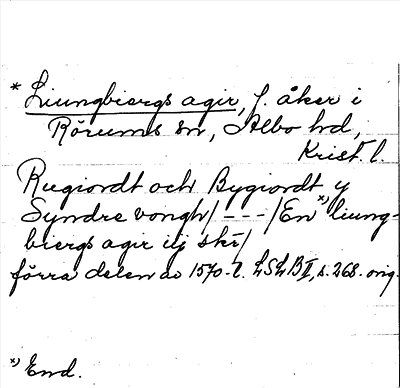 * Liungbiergs agir, f. åker i
Rörums sn, Albo hd,
Krist. l.
Rugiordt och Bygiordt y
Syndre vongh/ - - - /En *) liung-
biergs agir iij skr/
förra delen av 1570-t. LSLB II, s. 268. orig.
*) End.